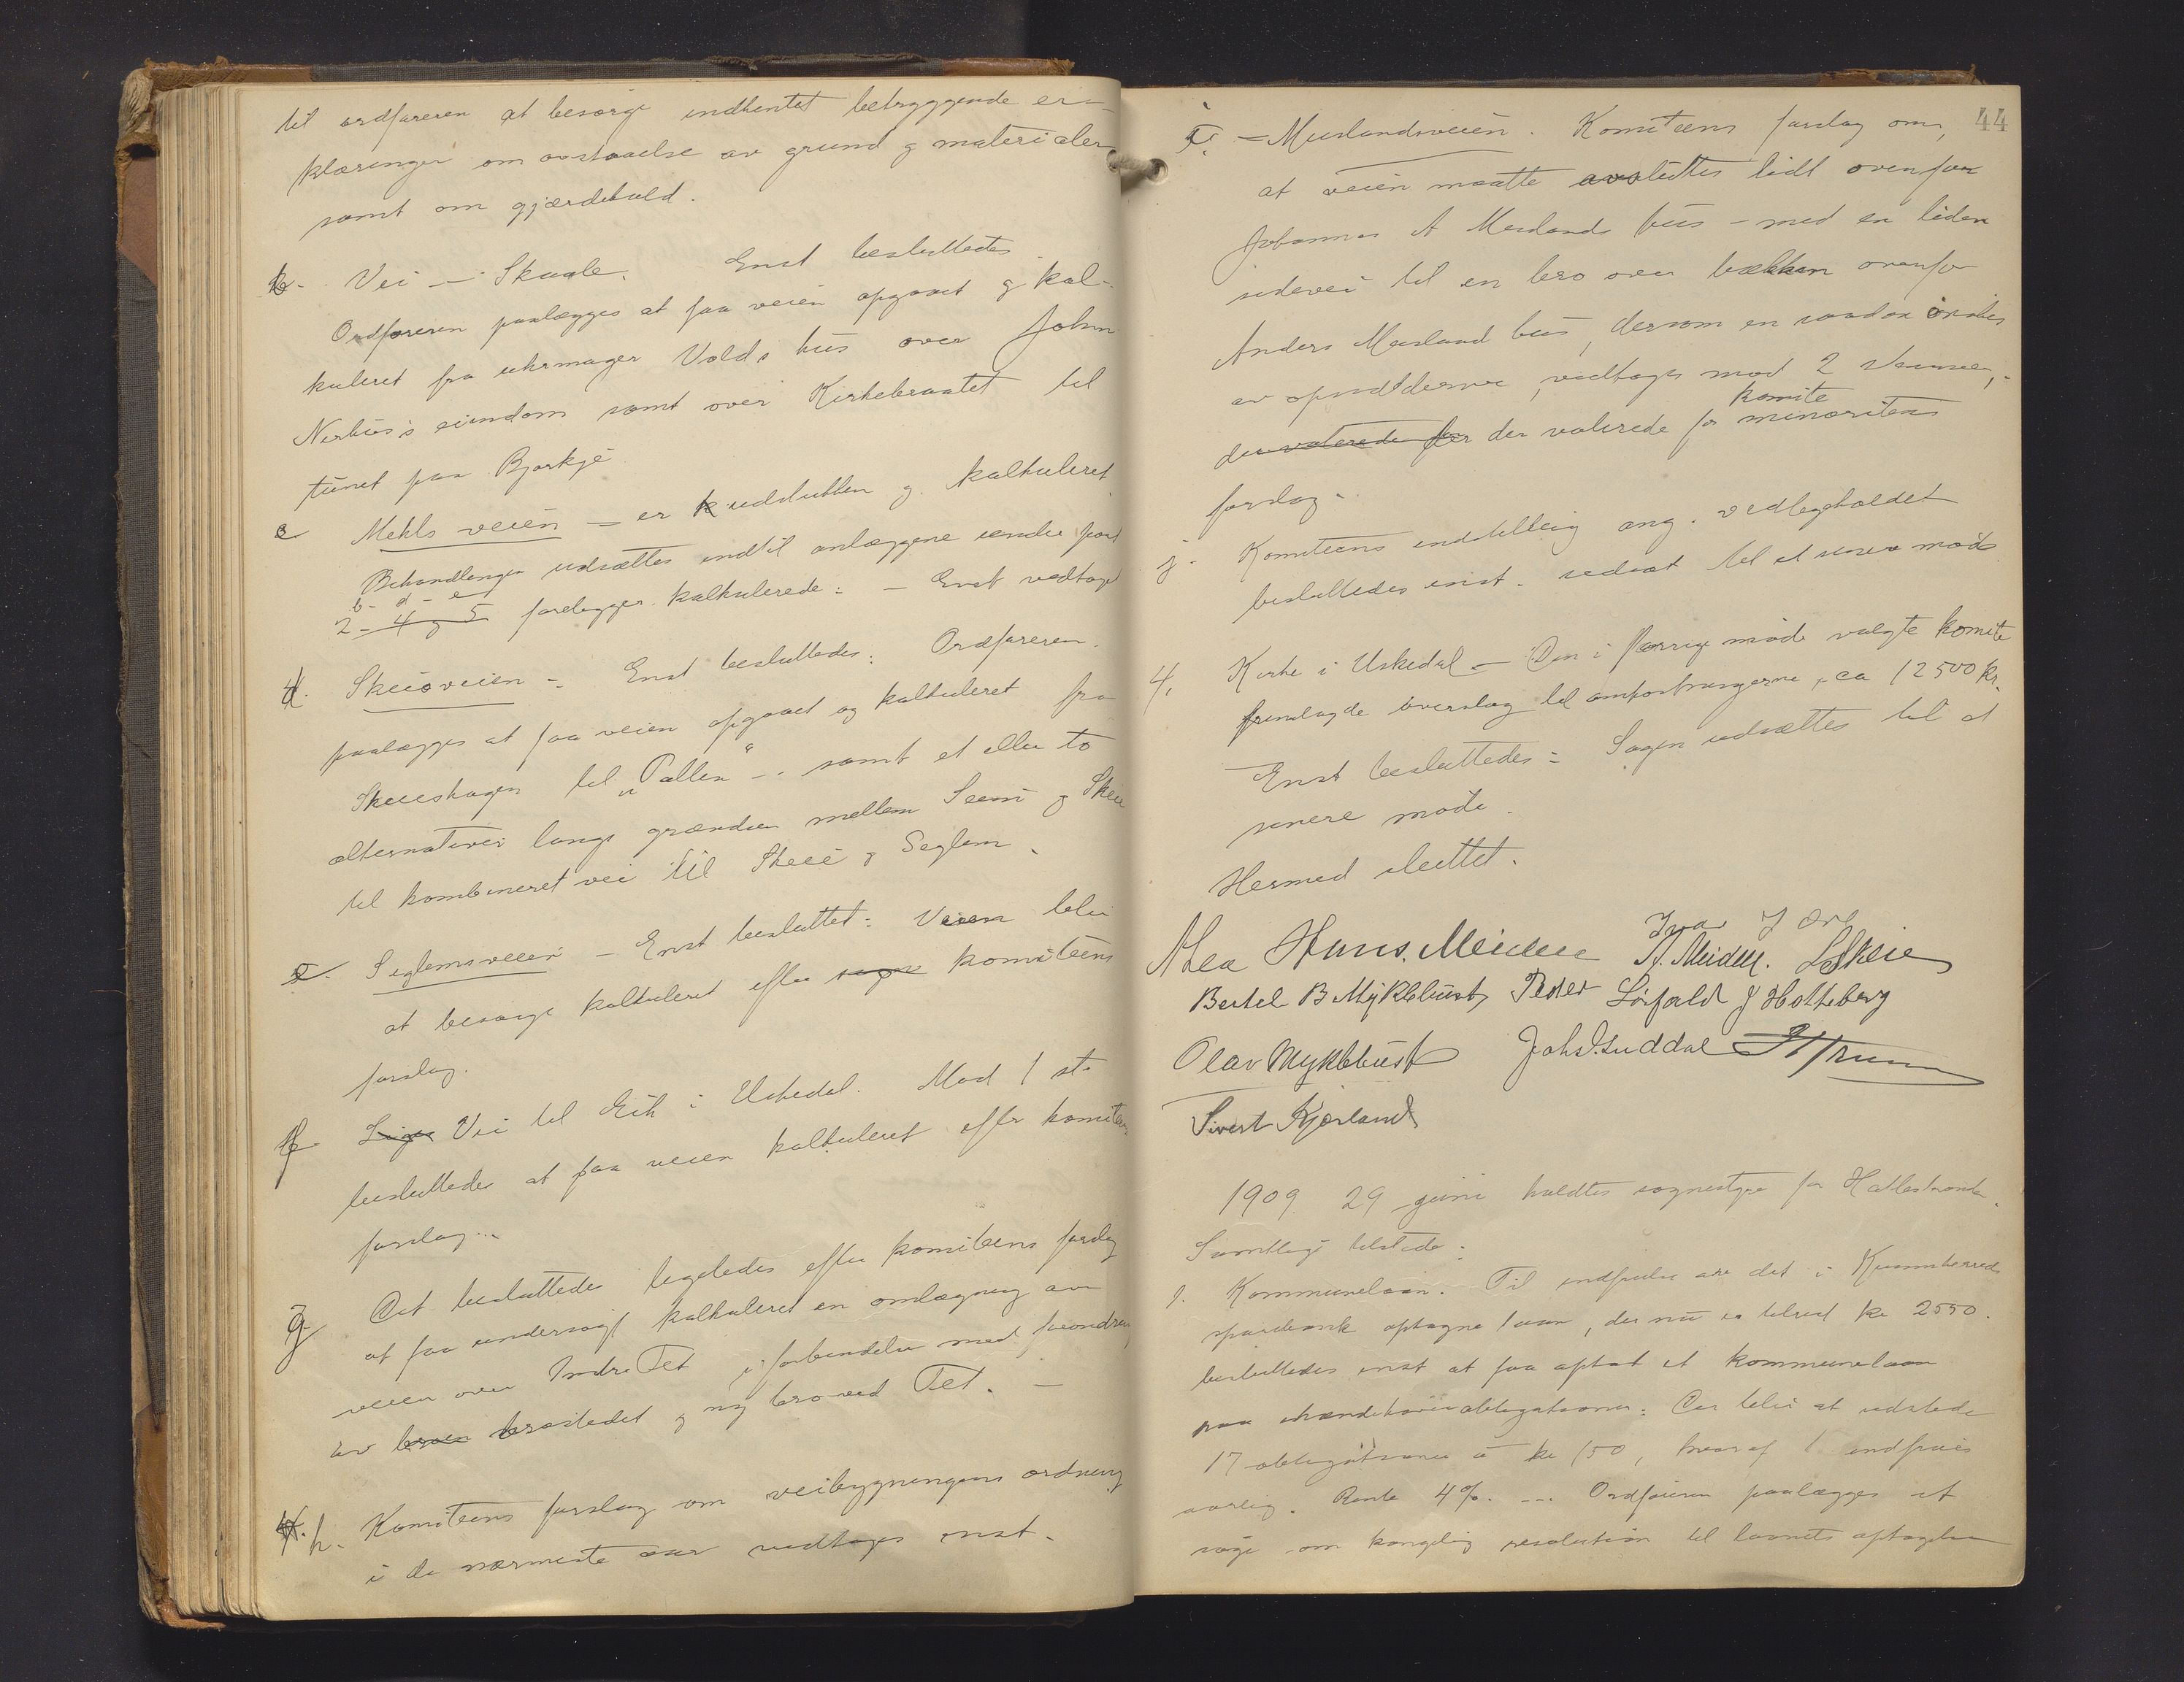 til ordføreren at besørge indhentet betryggende er-
klæringer om avstaaelse av grund & materialer
samt om gjærdehold.
b. Vei – Skaale. Enst besluttedes
Ordføreren paalægges at faa veien opgaaet & kal-
kuleret fra uhrmager Volds hus over John
Nerhus's eiendom samt over Kirkebraatet til
tunet paa Bjørkje
c Mehls veien – er udskutten & kalkuleret
Behandlingen udsættes indtil anlæggene under post
b- d- e
2- 4 & 5 foreligger kalkulerede: – Enst vedtaget
d. Skeieveien – Enst besluttedes: Ordføreren
paalægges at faa veien opgaaet og kalkuleret fra
Skeieshagen til „Pallen“ – samt et eller to
alternativer langs grændsen mellem Seem & Skeie
til kombineret vei til Skeie & Seglem.
e. Seglemsveien – Enst besluttet: Veien blir
at besørge kalkuleret efter komiteens
forslag.
f Vei til Eik i Uskedal. Mod 1 st.
besluttedes at faa veien kalkuleret efter komiteens
forslag..
g Det besluttedes ligeledes efter komiteens forslag
at faa undersøgt kalkuleret en omlægning av
veien over Indre Tet i forbindelse med forandring
av broen brostedet & ny bro ved Tet. –
h. Komiteens forslag om veibygningens ordning
i de nærmeste aar vedtages enst.
44
i. – Muslandsveien. Komiteens forslag om,
at veien maatte avsluttes lidt ovenfor
Johannes A Muslands hus – med en liden
sidevei til en bro over bækken ovenfor
Anders Musland hus, dersom en saadan ønskes
av opsidderne, vedtages mod 2 stemmer,
komite
der voterede for der voterede for minoritens
forslag.
j. Komiteens indstilling ang. vedligeholdet
besluttedes enst. udsat til et senere møde
4, Kirke i Uskedal – Den i forrige møde valgte komite
fremlagde overslag til omkostningerne, ca 12500 kr.
Enst besluttedes: Sagen udsættes til et
senere møde.
Hermed sluttet.
A Lea Hans. Meidell A. Meidell. L Skeie
Bertel B Myklebust Peder Løfald J Hatteberg
Olav Myklebust Johs Guddal
Sivert Kjærland
1909. 29 juni holdtes sognestyre for Hallestrande.
Samtlige tilstede:
1. Kommunelaan. Til indfrielse av det i Kvinnherreds
sparebank optagne laan, der nu er tilrest kr 2550.
besluttedes enst at faa optat et kommunelaan
paa ihændehaverobligationer: Der blir at udstede
17 obligationer à kr 150, hvoraf 1 indfries
aarlig. Rente 4%. --- Ordføreren paalægges at
søge om kongelig resolution til laanets optagelse